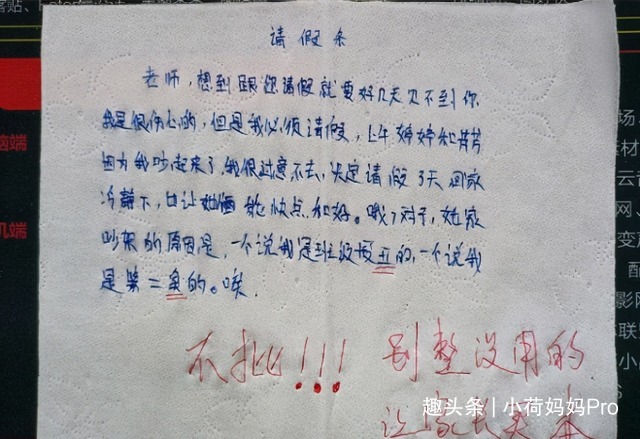 请假条
老师，想到跟您请假就要好几天见不到你
我是很伤心的，但是我必须请假，上午婷婷和芳芳
因为我吵起来了，我很过意不去，决定请假3天回家
冷静下，也让她俩能快点和好。哦，对了，她家
吵架的原因是，一个说我是班级最丑的，一个说我
是第二丑的。唉，
不批！！！ 别整没用的
让家长来
趣头条 | 小荷妈妈Pro
脑端
机端
场、
素材
云
网、
变声
影网
联